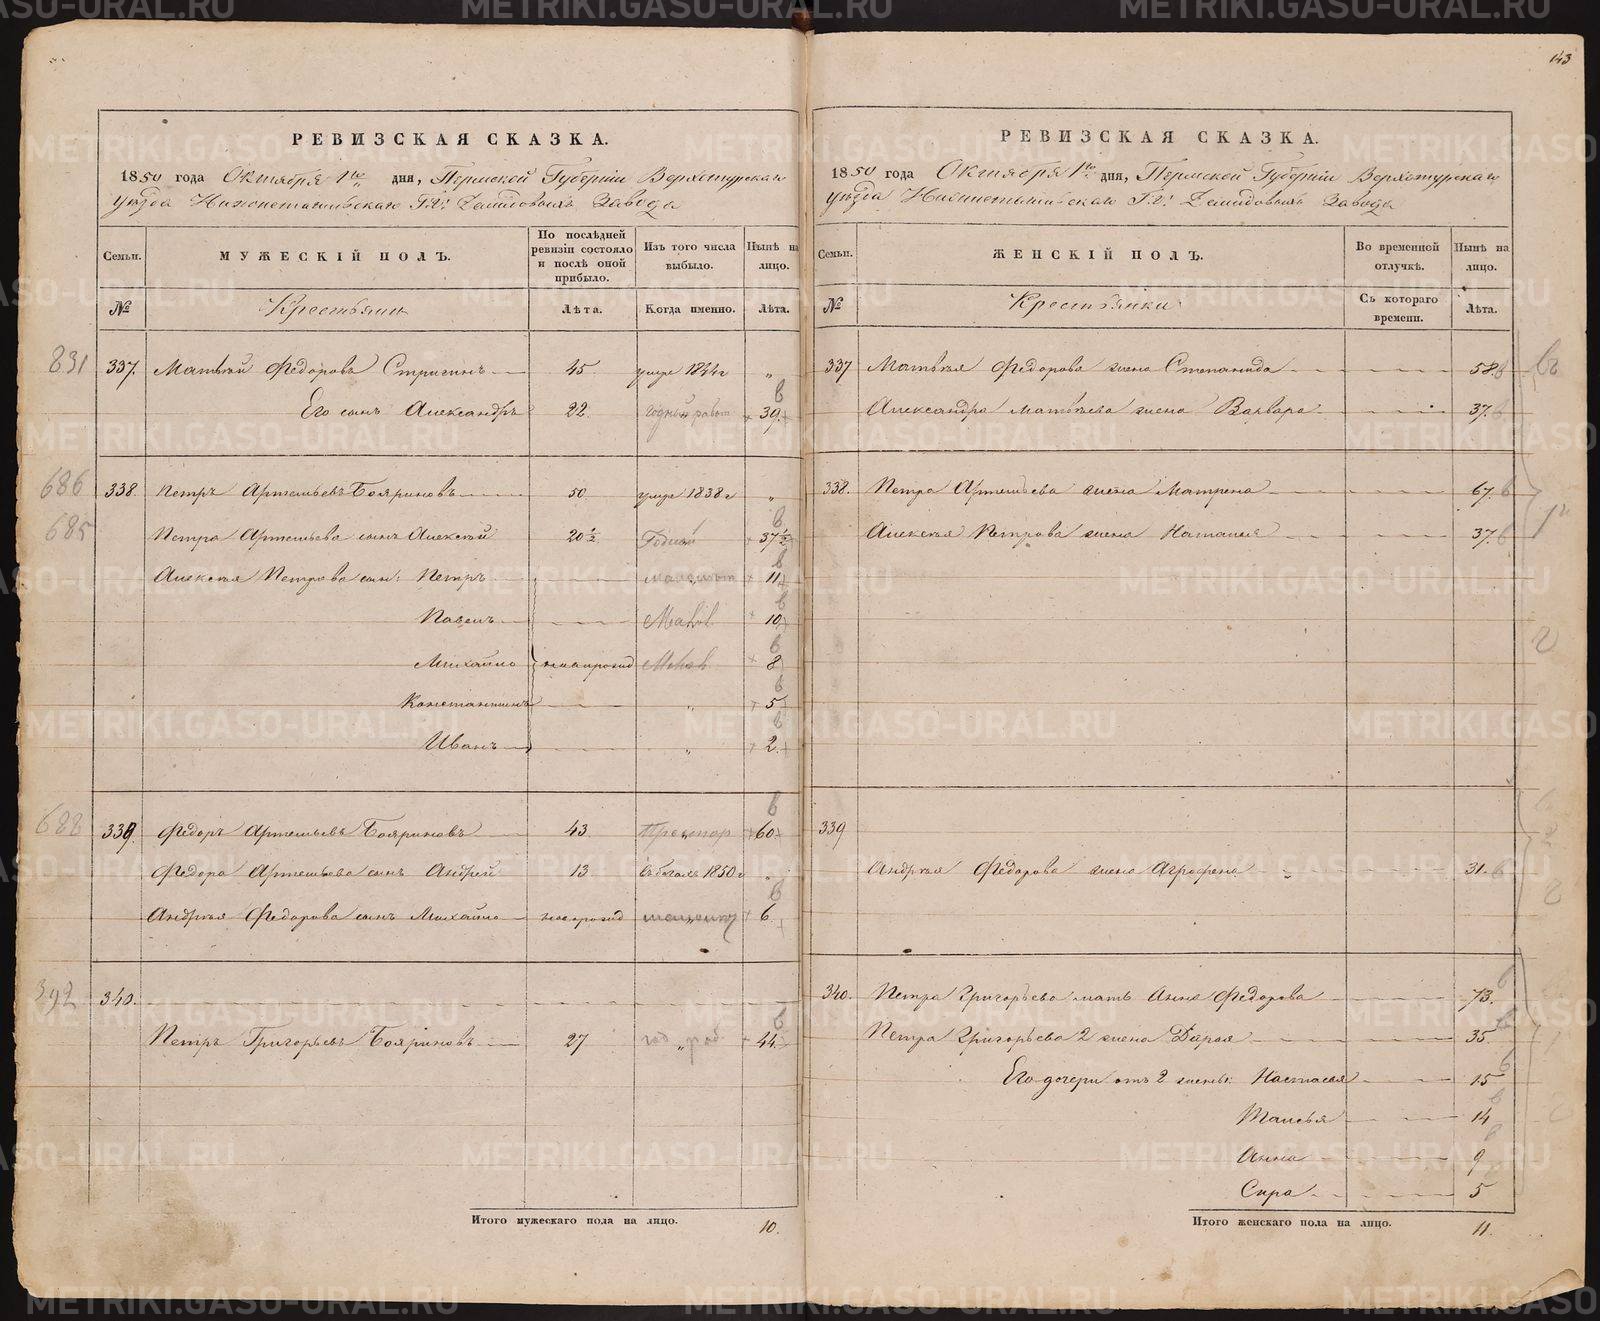 143
РЕВИЗСКАЯ СКАЗКА.
1850 года Октября 1го дня, Пермской Губерніи Верхотурскаго
уѣзда Нижнетагильскаго Г.г. Демидовыхъ Завода
Семьи. МУЖЕСКІЙ ПОЛЪ. По послѣдней ревизіи состояло и послѣ оной прибыло. Изъ того числа выбыло. Нынѣ на лицо.
№ Крестьяни Лѣта. Когда именно. Лѣта.
831 337. Матвѣй Федоровъ Стригинъ 45. умре 1844 г „
Его сынъ Александръ 22. годный работ 39.
686 338. Петръ Артемьевъ Бояриновъ 50. умре 1838 г „
685 Петра Артемьева сынъ Алексѣй 20½ Годный 37½
Алексѣя Петрова сын: Петръ 11
Павелъ 10
Михайло новорожд 8
Константинъ „ 5
Иванъ „ 2.
688 339. Федоръ Артемьевъ Бояриновъ 43. Престар 60
Федора Артемьева сынъ Андрей 13 въ бѣгахъ 1850 г „
Андрея Федорова сынъ Михайло новорожд 6.
392 340.
Петръ Григорьевъ Бояриновъ 27 год „ раб 44.
Итого мужескаго пола на лицо. 10.
РЕВИЗСКАЯ СКАЗКА.
1850 года Октября 1го дня, Пермской Губерніи Верхотурскаго
уѣзда Нижнетагильскаго Г.г. Демидовыхъ Завода
Семьи. ЖЕНСКІЙ ПОЛЪ. Во временной отлучкѣ. Нынѣ на лицо.
№ Крестьянки Съ котораго времени. Лѣта.
337 Матвѣя Федорова жена Степанида 58.
Александра Матвѣева жена Варвара 37.
338. Петра Артемьева жена Матрена 67.
Алексѣя Петрова жена Наталья 37.
339
Андрея Федорова жена Аграфена 31.
340. Петра Григорьева мать Анна Федорова 73.
Петра Григорьева 2 жена Дарья 35
Его дочери отъ 2 жены: Настасья 15
Таисья 14
Анна 9
Сира 5
Итого женскаго пола на лицо. 11.
METRIKI.GASO-URAL.RU